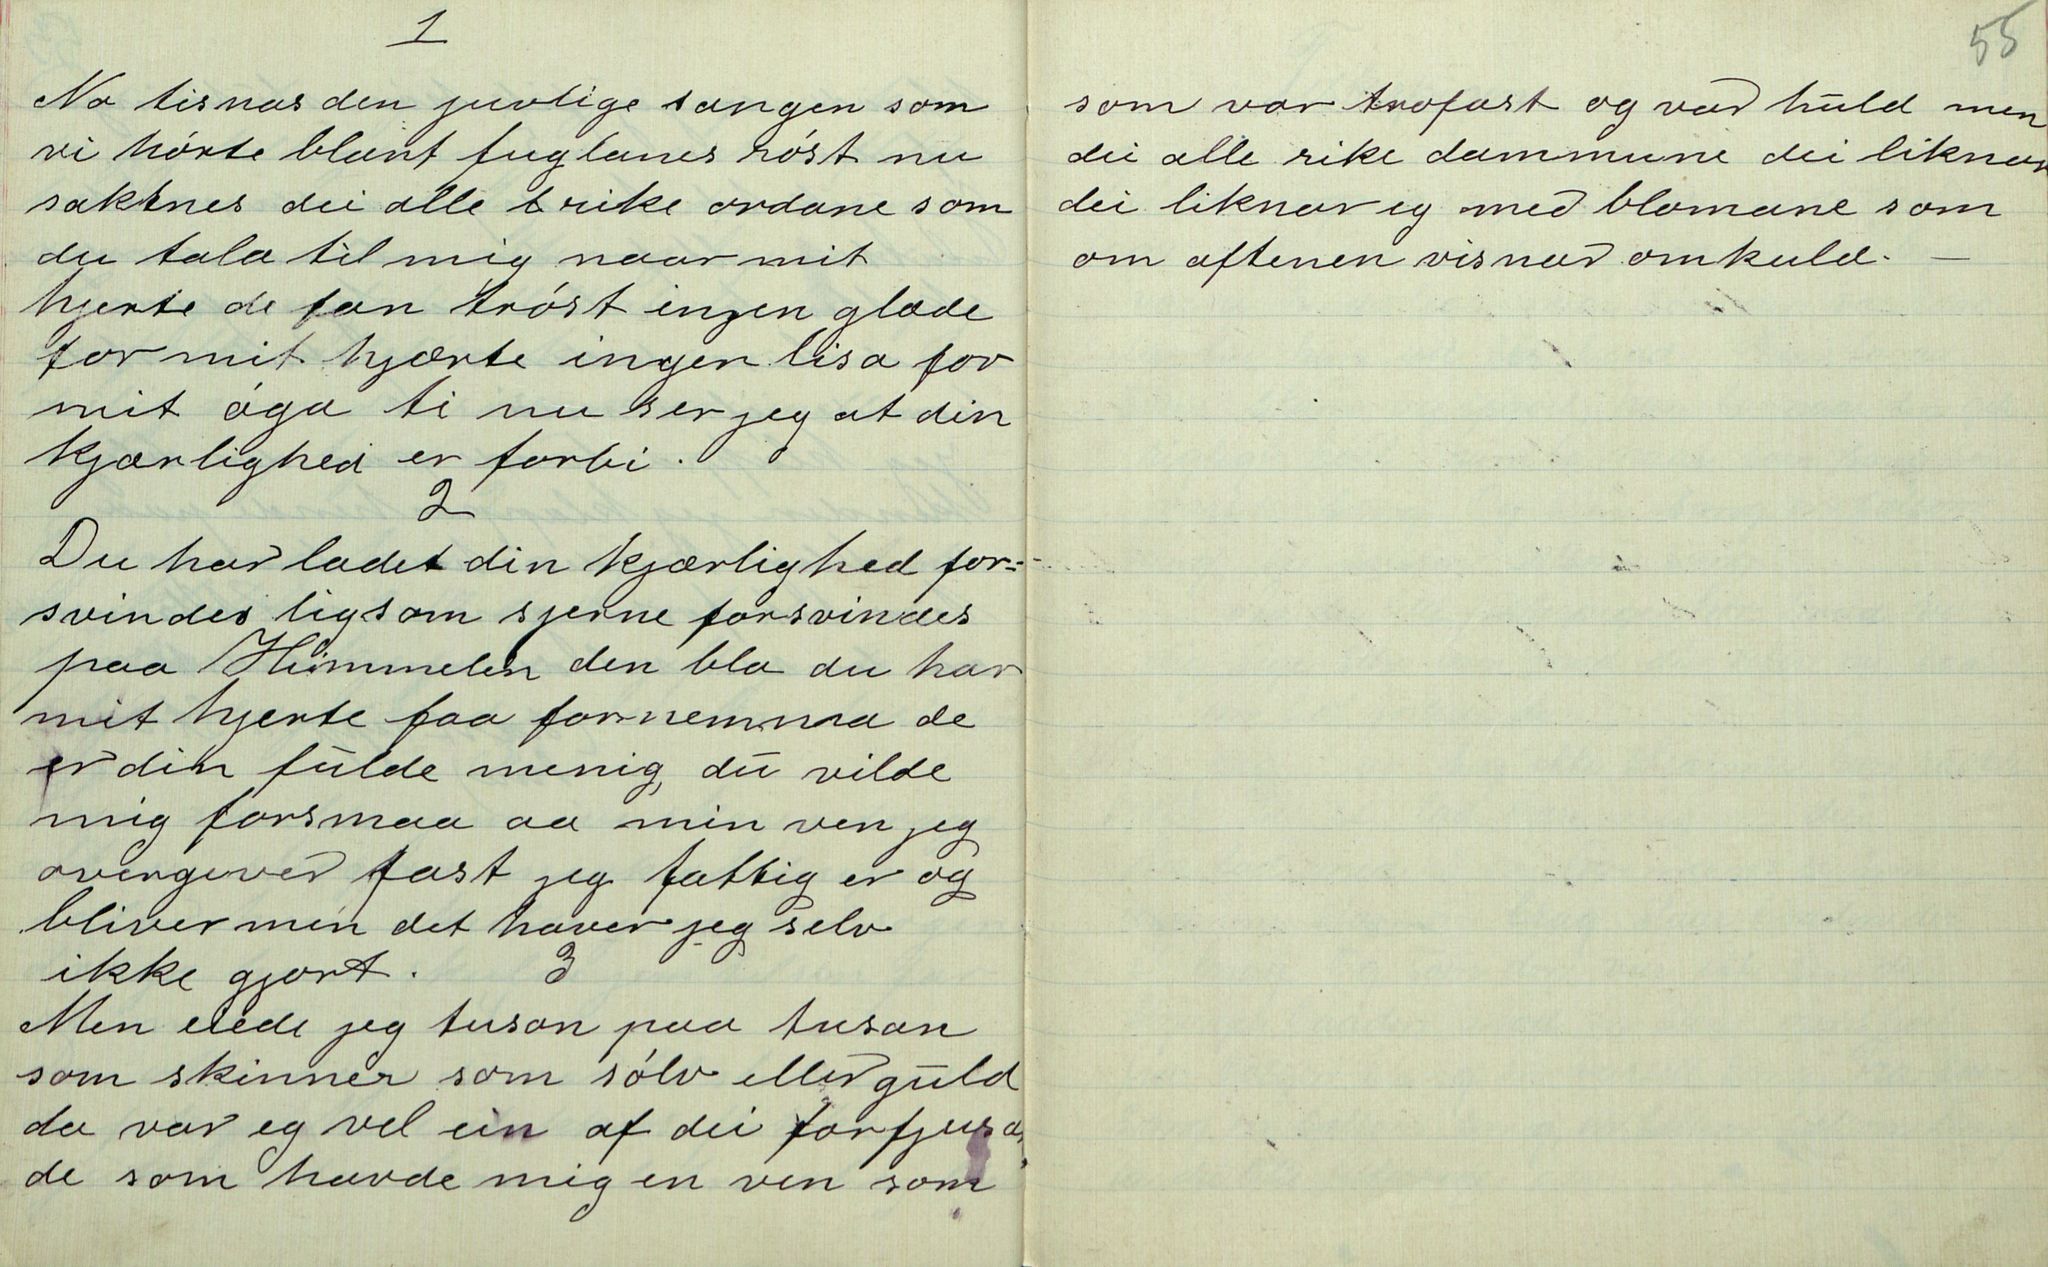 1
No tisnas den juvlige sangen som
vi hórte blant fuglanes róst nu
saktnes dei alle trike ordane som
du tala til mig naar mit
hjerte de fan tróst ingen glæde
for mit hjærte ingen lisa for
mit óga ti nu ser jeg at din
kjærlighed er forbi.
2
Du har ladet din kjærlighed for-
svindes ligsom sjerne forsvindes
paa Himmelen den bla du har
mit hjerte faa fornemma de
er din fulde menig, du vilde
mig forsmaa aa min ven jeg
overgiver fast jeg fattig er og
bliver men det haver jeg selv
ikke gjort.
3
Men eiede jeg tusan paa tusan
som skinner som sólv eller guld
da var eg vel ein af dei forfjusa,
de som havde mig en ven som
55
som var trofast og var huld men
dei alle rike dammune dei liknar
dei liknar eg med blomane som
om aftenen visnar omkuld. —